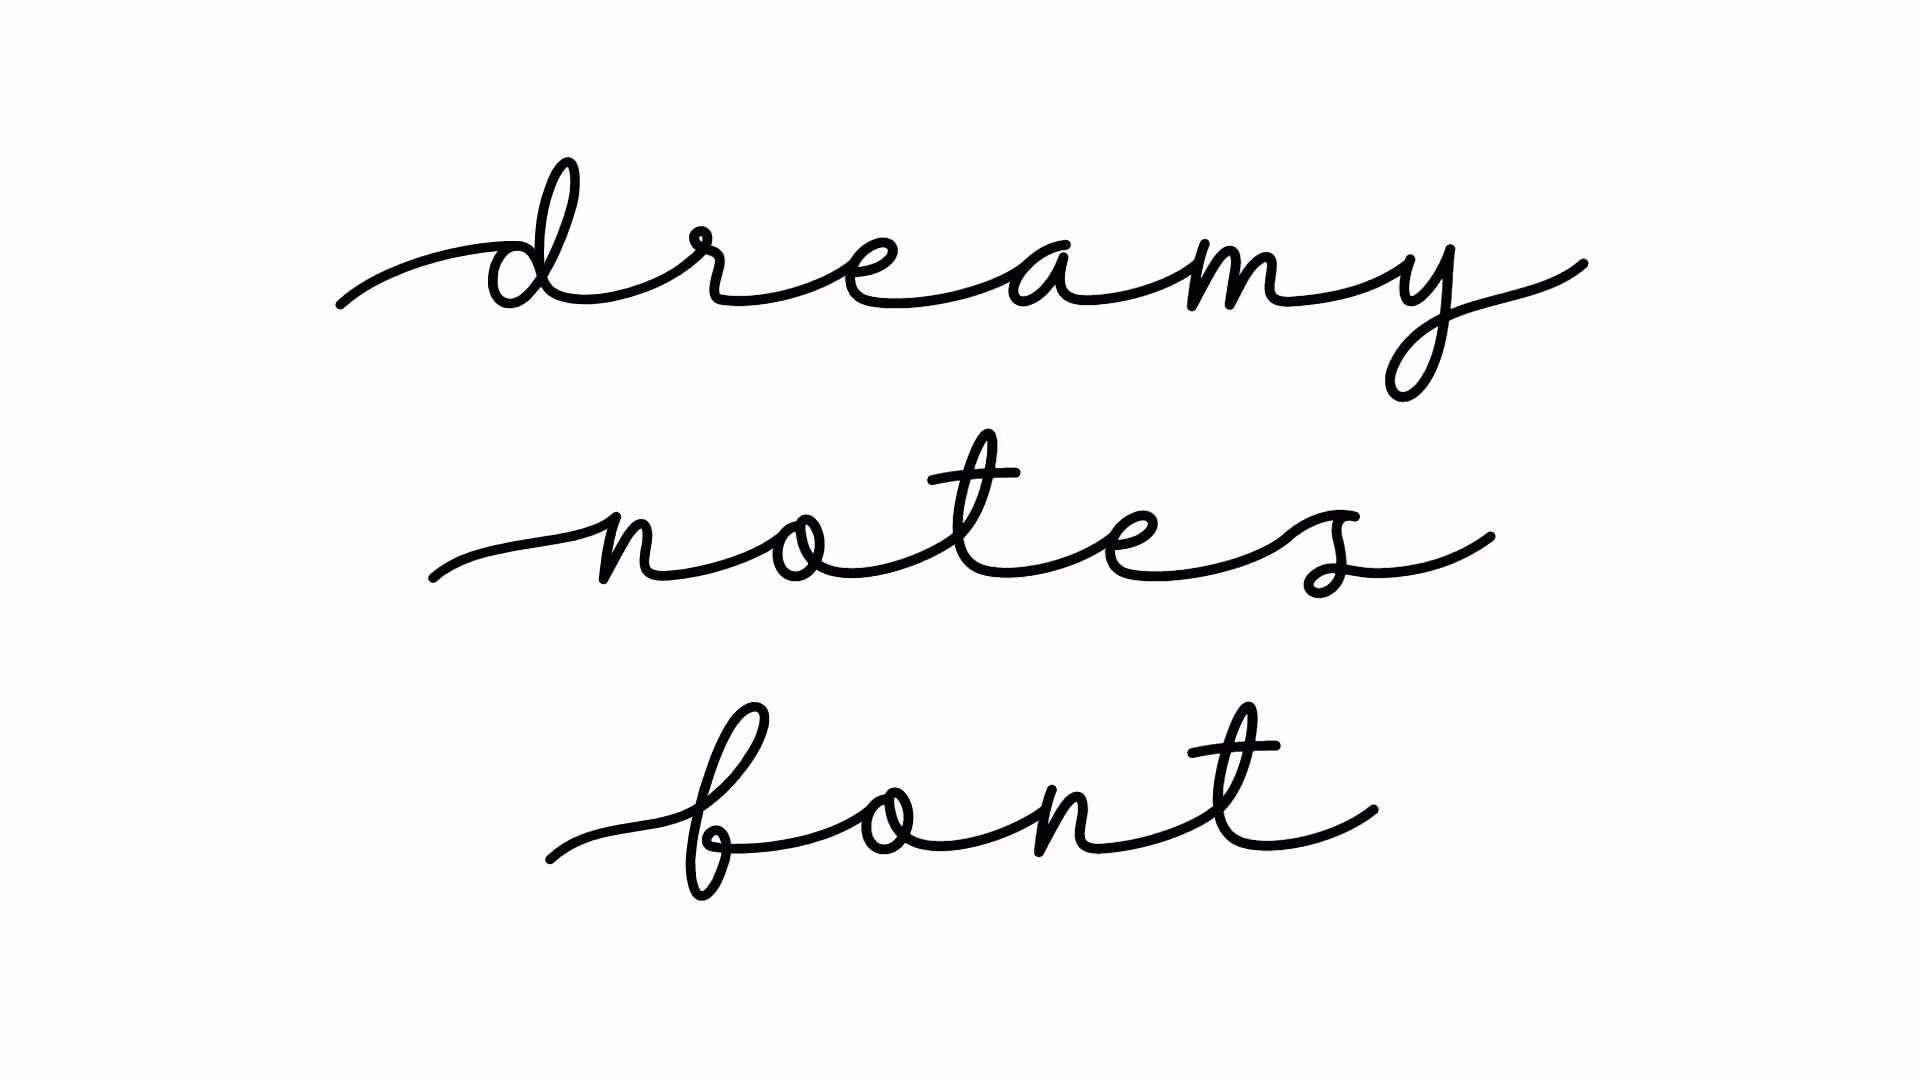 dreamy
notes
font